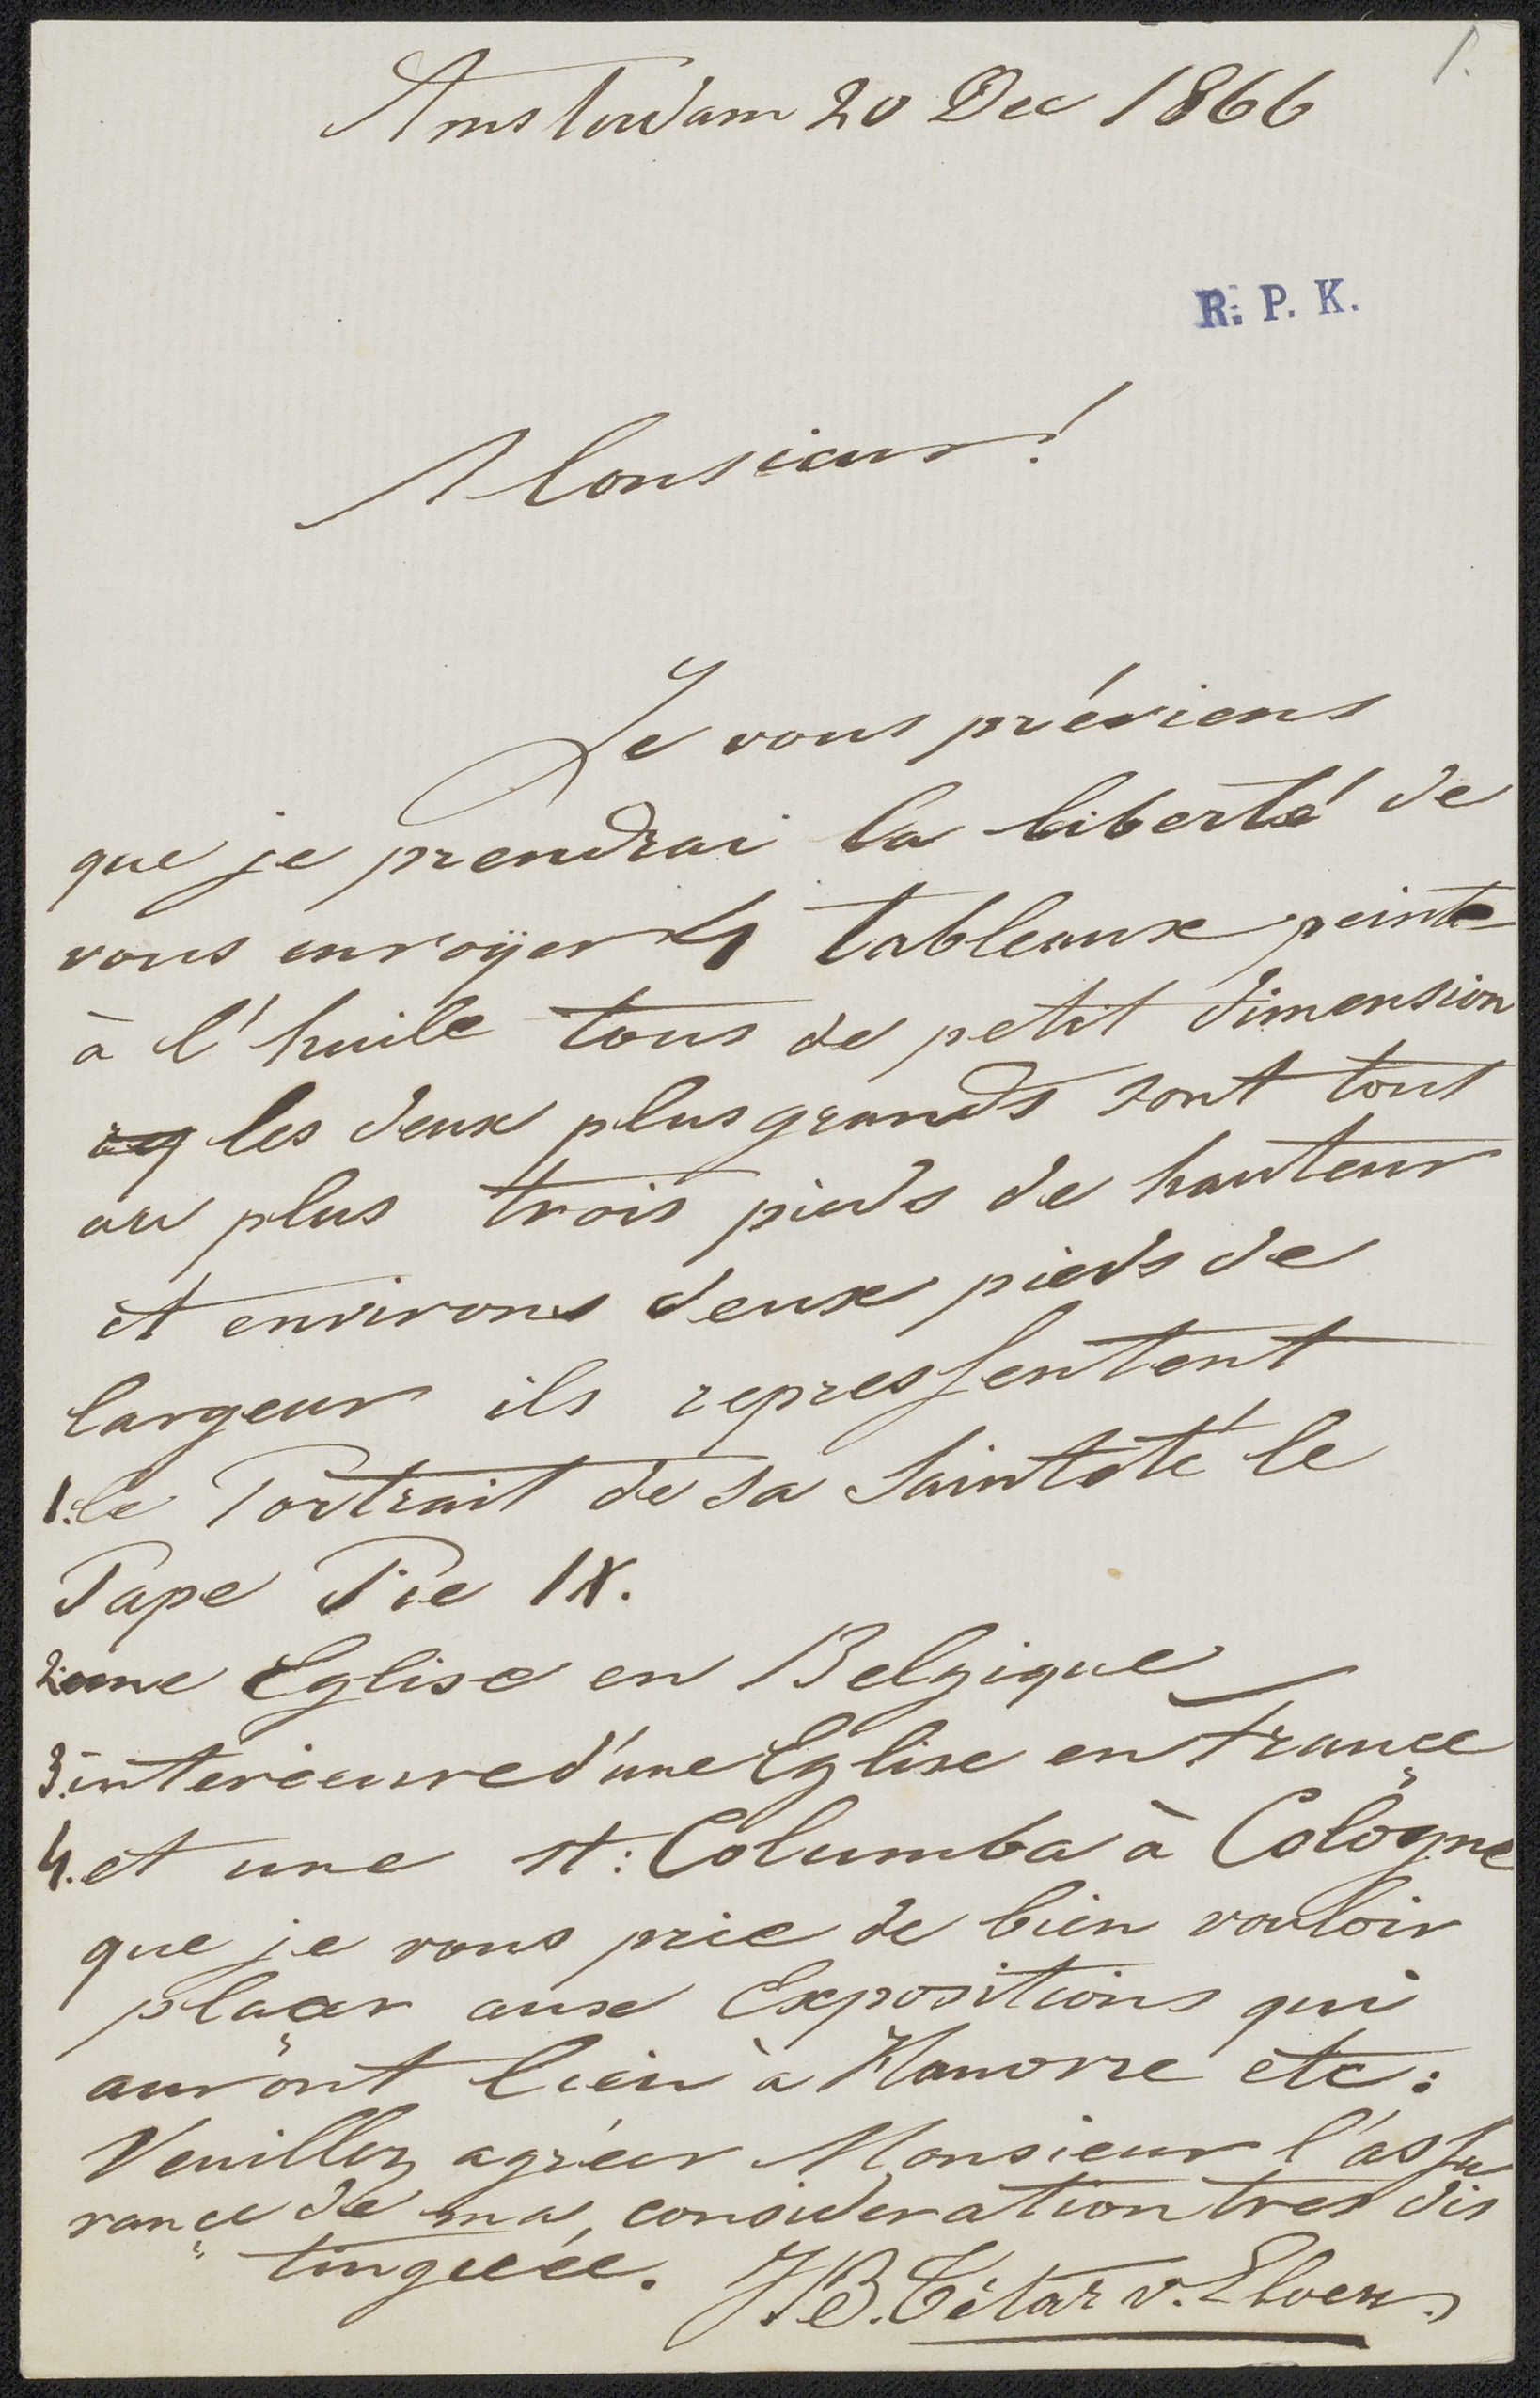 1.
Amsterdam 20 Dec 1866
R. P. K.
Monsieur!
Je vous préviens
que je prendrai la liberté de
vous envoÿer 4 tableaux peints
à l'huile tous de petit dimension
les deux plus grands sont tout
au plus trois pieds de hauteur
et environs deux pieds de
largeur ils repressentent
1. le Portrait de sa Saintété le
Pape Pie IX.
2. une Eglise en Belgique
3. interieure d'une Eglise en françe
4. et une St: Columba à Cologne
que je vous prie de bien vouloir
plaçer aux Expositions qui
auront lieu à Hanovre etc:
Veuillez agréer Monsieur l'assu
rançe de ma consideration tres dis
tinguéee. J.B. Tétar v. Elven